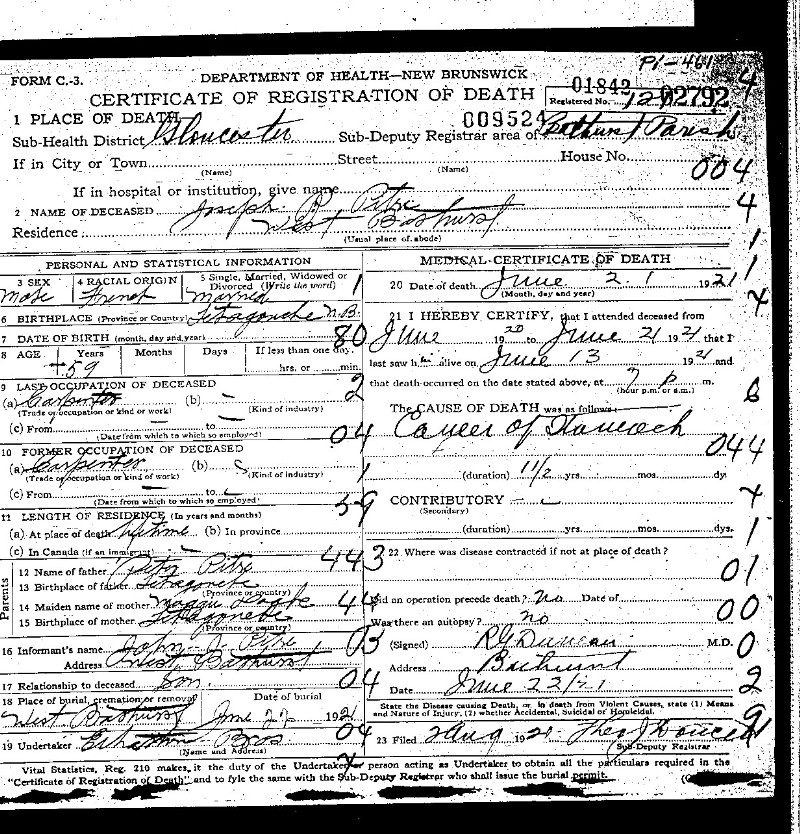 P1-461
FORM C.-3.
DEPARTMENT OF HEALTH—NEW BRUNSWICK
CERTIFICATE OF REGISTRATION OF DEATH
01842
Registered No. 02792
009524
1 PLACE OF DEATH
Sub-Health District Gloucester Sub-Deputy Registrar area of Bathurst Parish
If in City or Town Street House No.
(Name) (Name)
004
If in hospital or institution, give name
2 NAME OF DECEASED Joseph P. Pitre
4
Residence West Bathurst
(Usual place of abode)
1
PERSONAL AND STATISTICAL INFORMATION
3 SEX Male
4 RACIAL ORIGIN French
5 Single, Married, Widowed or Divorced (Write the word) Married
1
6 BIRTHPLACE (Province or Country) Tetagouche N.B.
7 DATE OF BIRTH (month, day and year)
80
8 AGE Years Months Days If less than one day,
59 hrs. or min.
9 LAST OCCUPATION OF DECEASED
2
(a) Carpenter (b)
(Trade or occupation or kind or work) (Kind of industry)
(c) From to
(Date from which to which so employed)
04
10 FORMER OCCUPATION OF DECEASED
(a) Carpenter (b)
(Trade or occupation or kind of work) (Kind of industry)
1
(c) From to
(Date from which to which so employed)
59
11 LENGTH OF RESIDENCE (In years and months)
(a) At place of death lifetime (b) In province
(c) In Canada (if an immigrant)
Parents
12 Name of father Pitre
443
13 Birthplace of father Tetagouche
(Province or country)
14 Maiden name of mother
15 Birthplace of mother Tetagouche
(Province or country)
16 Informant's name John J. Pitre
03
Address West Bathurst
17 Relationship to deceased Son
04
18 Place of burial, cremation or removal Date of burial
West Bathurst June 22 1921
19 Undertaker Bros
04
(Name and Address)
MEDICAL CERTIFICATE OF DEATH
20 Date of death June 21 1921
(Month, day and year)
21 I HEREBY CERTIFY, that I attended deceased from
June 1920 to June 21 1921 that I
last saw him alive on June 13 1921 and
that death occurred on the date stated above, at 7 p m.
(hour p.m. or a.m.)
6
The CAUSE OF DEATH was as follows:
Cancer of Stomach
044
(duration) 1 1/2 yrs. mos. dy.
CONTRIBUTORY
(Secondary)
(duration) yrs. mos. dys.
1
22. Where was disease contracted if not at place of death?
01
Did an operation precede death? No Date of
00
Was there an autopsy? no
(Signed) R G Duncan M.D.
0
Address Bathurst
Date June 22/21
2
State the Disease causing Death, or, in death from Violent Causes, state (1) Means and Nature of Injury, (2) whether Accidental, Suicidal or Homicidal.
9
23 Filed 2 Aug 1921
Sub-Deputy Registrar
Vital Statistics, Reg. 210 makes it the duty of the Undertaker or person acting as Undertaker to obtain all the particulars required in the
"Certificate of Registration of Death" and to fyle the same with the Sub-Deputy Registrar who shall issue the burial permit.